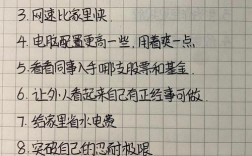 3. 网速比家里快.
4. 电脑配置更高一些,用着爽一点.
5. 看看同事入手哪支股票和基金.
6. 让外人看起来自己有正经事可做.
7. 给家里省水电费
8. 突破自己的忍耐极限